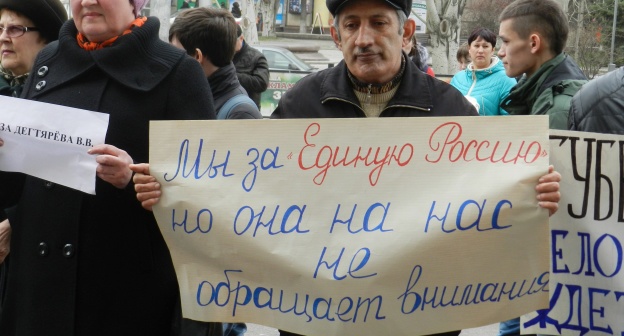 ЗА ДЕГТЯРЁВА В.В.
Мы за "Единую Россию"
но она на нас
не
обращает внимания